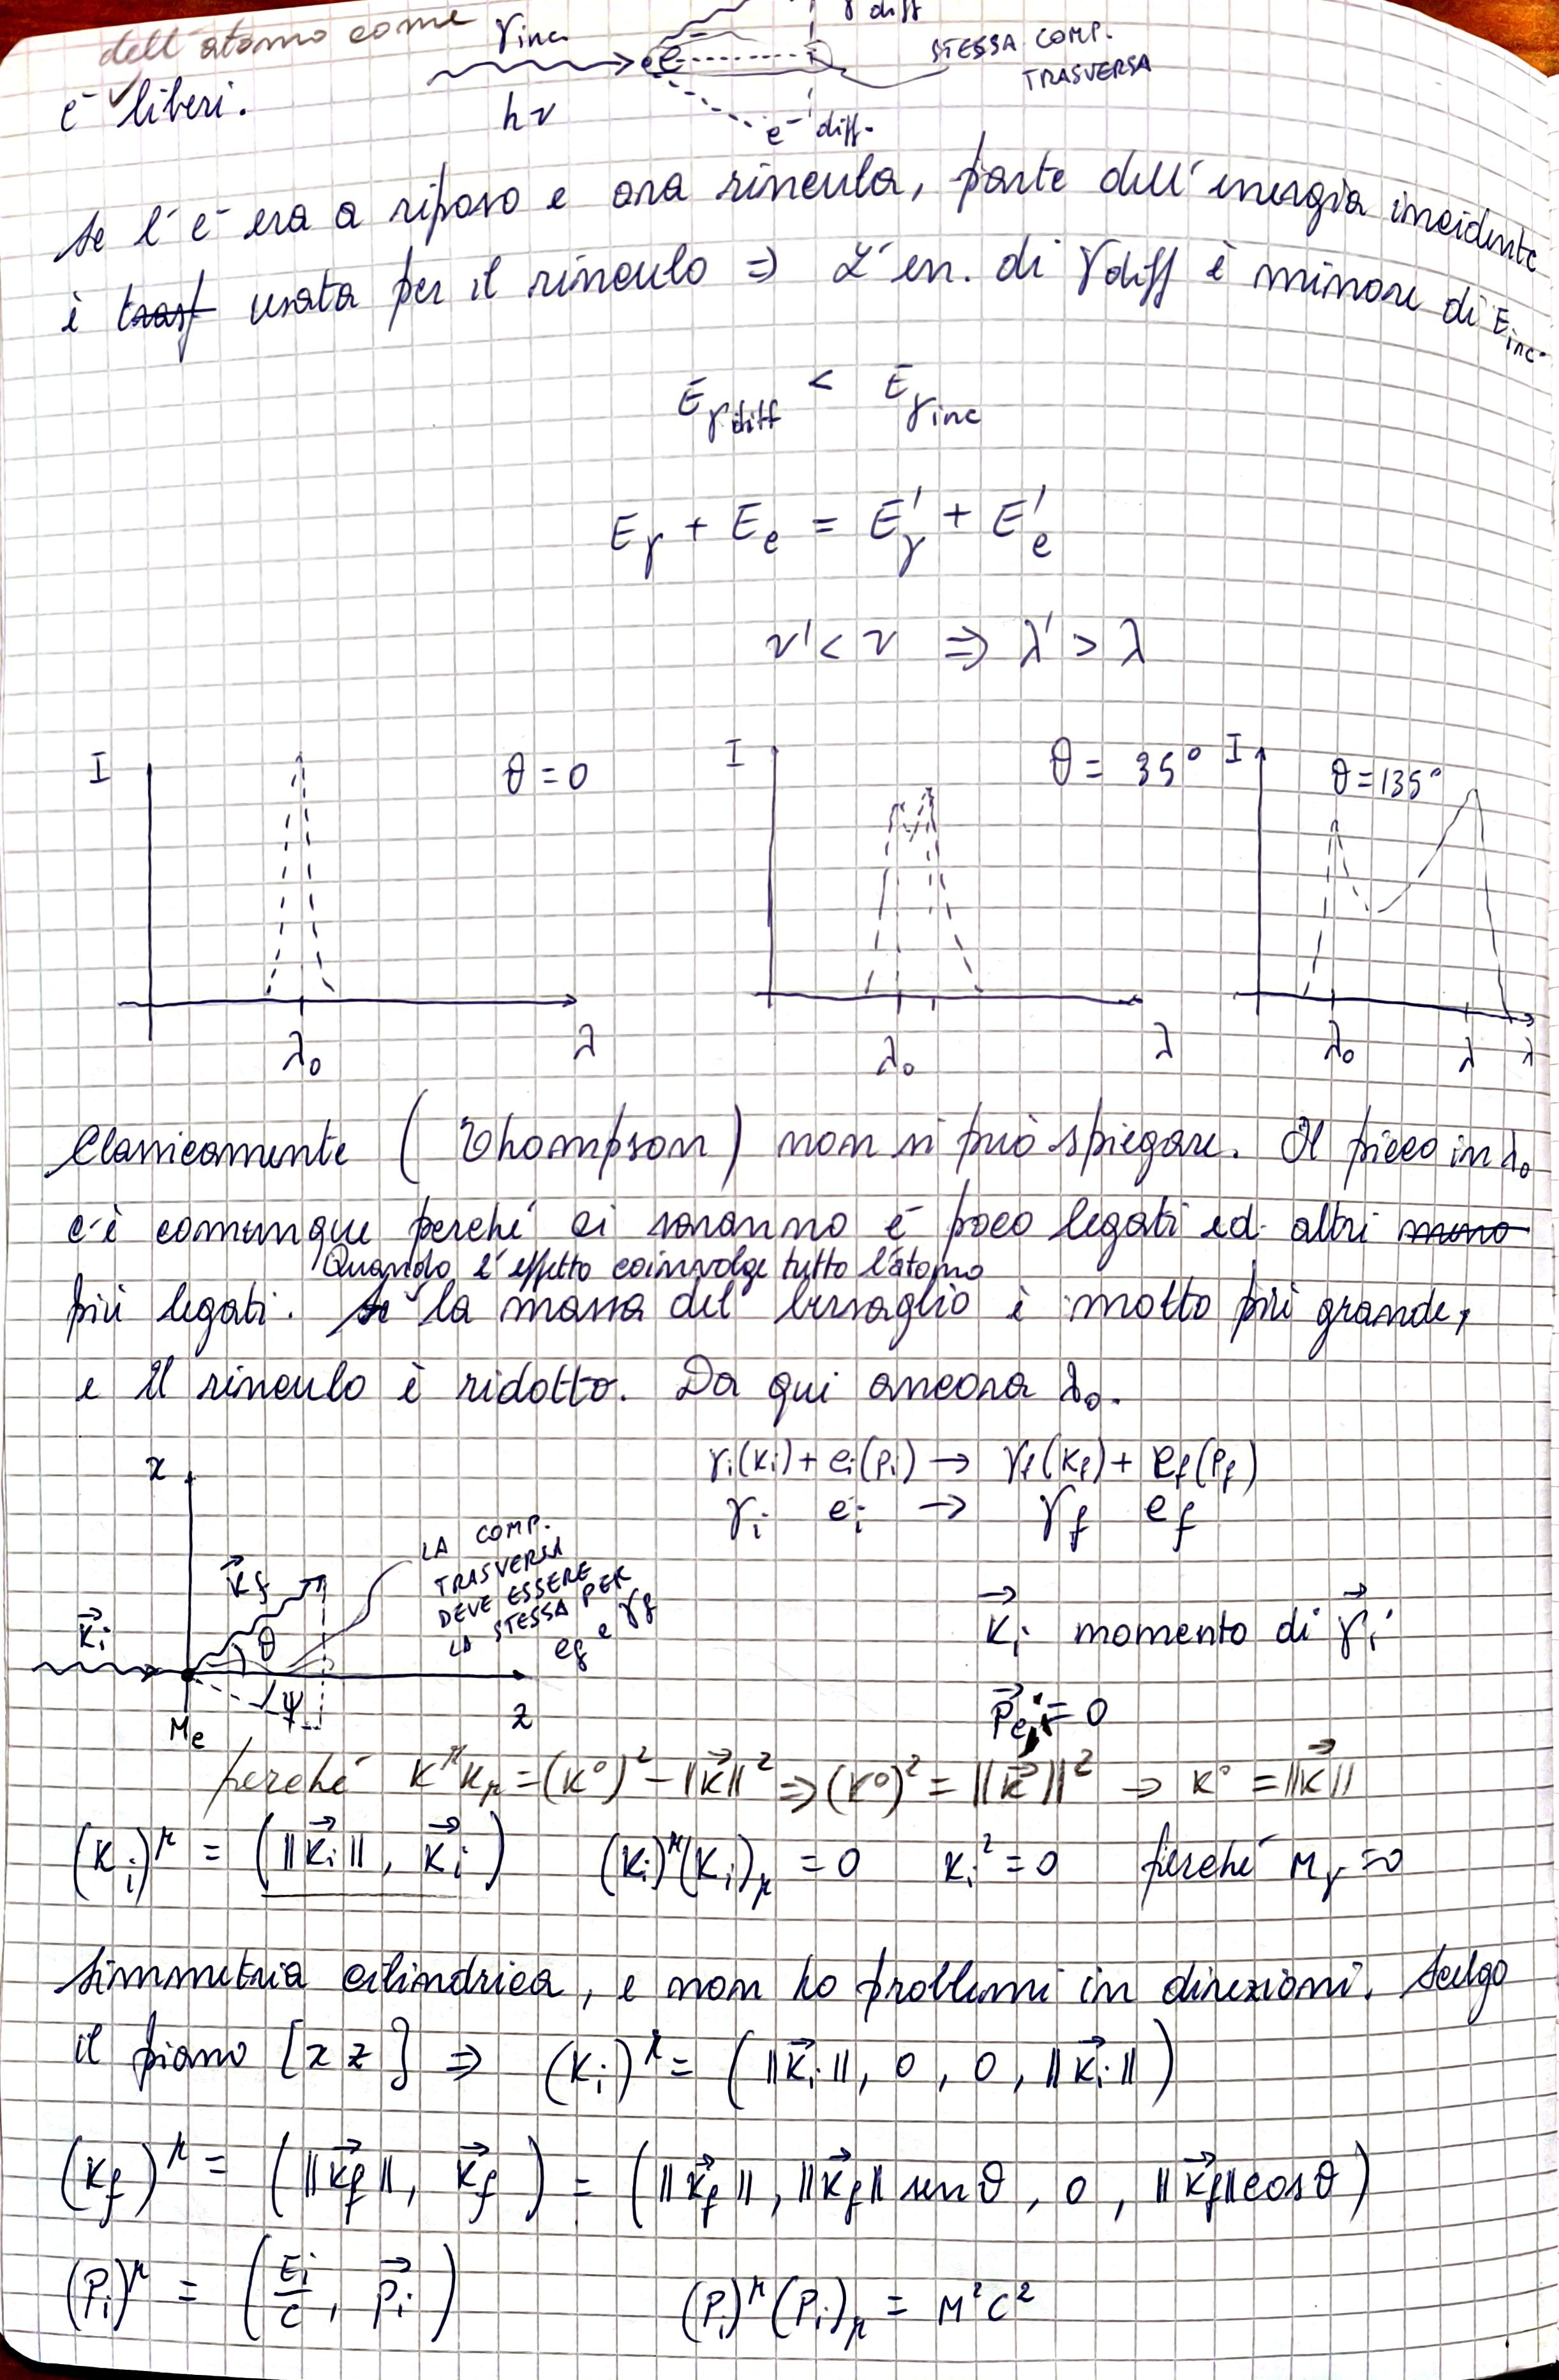 dell'atomo come
e⁻ liberi.
γinc
hν
e⁻
γ diff
e⁻ diff.
STESSA COMP.
TRASVERSA
Se l'e⁻ era a riposo e ora rincula, parte dell'energia incidente
è trasf usata per il rinculo ⇒ L'en. di γdiff è minore di E inc.
E γdiff < E γinc
Eγ + Ee = E'γ + E'e
ν' < ν ⇒ λ' > λ
I θ = 0
λ₀ λ
I θ = 35°
λ₀ λ
I θ = 135°
λ₀ λ λ
Classicamente (Thompson) non si può spiegare. Il picco in λ₀
c'è comunque perché ci saranno e⁻ poco legati ed altri meno
Quando l'effetto coinvolge tutto l'atomo
più legati. Se la massa del bersaglio è molto più grande,
e il rinculo è ridotto. Da qui ancora λ₀.
γi(Ki) + ei(pi) → γf(Kf) + ef(pf)
γi ei → γf ef
x
K⃗f
K⃗i
θ
ψ
Me
z
LA COMP.
TRASVERSA
DEVE ESSERE
LA STESSA PER
ef e γf
K⃗i momento di γ⃗i
P⃗ei = 0
perché K^μ K_μ = (K°)² − ||K⃗||² ⇒ (K°)² = ||K⃗||² → K° = ||K⃗||
(Ki)^μ = (||K⃗i||, K⃗i) (Ki)^μ(Ki)_μ = 0 Ki² = 0 perché Mγ = 0
Simmetria cilindrica, e non ho problemi in direzioni. Scelgo
il piano [x z] ⇒ (Ki)^μ = (||K⃗i||, 0, 0, ||K⃗i||)
(Kf)^μ = (||K⃗f||, K⃗f) = (||K⃗f||, ||K⃗f|| sen θ, 0, ||K⃗f|| cos θ)
(Pi)^μ = (Ei/c, p⃗i) (Pi)^μ (Pi)_μ = M²c²